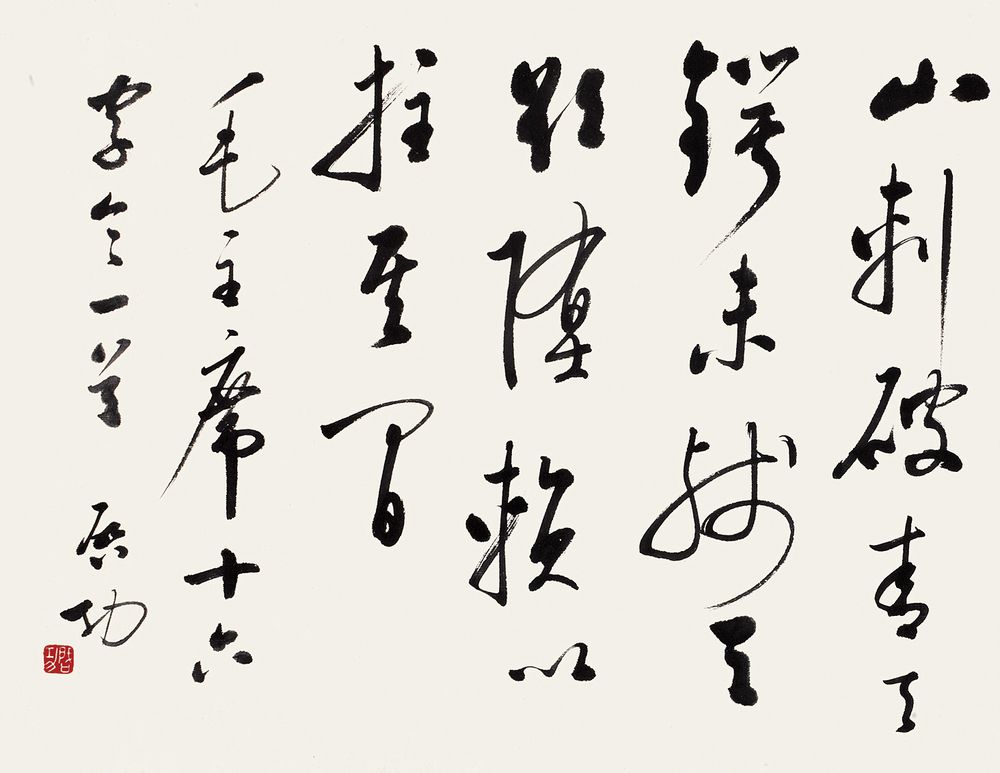 山刺破青天
锷未残天
欲堕赖以
拄其间
毛主席十六
字令一首 启功
启功